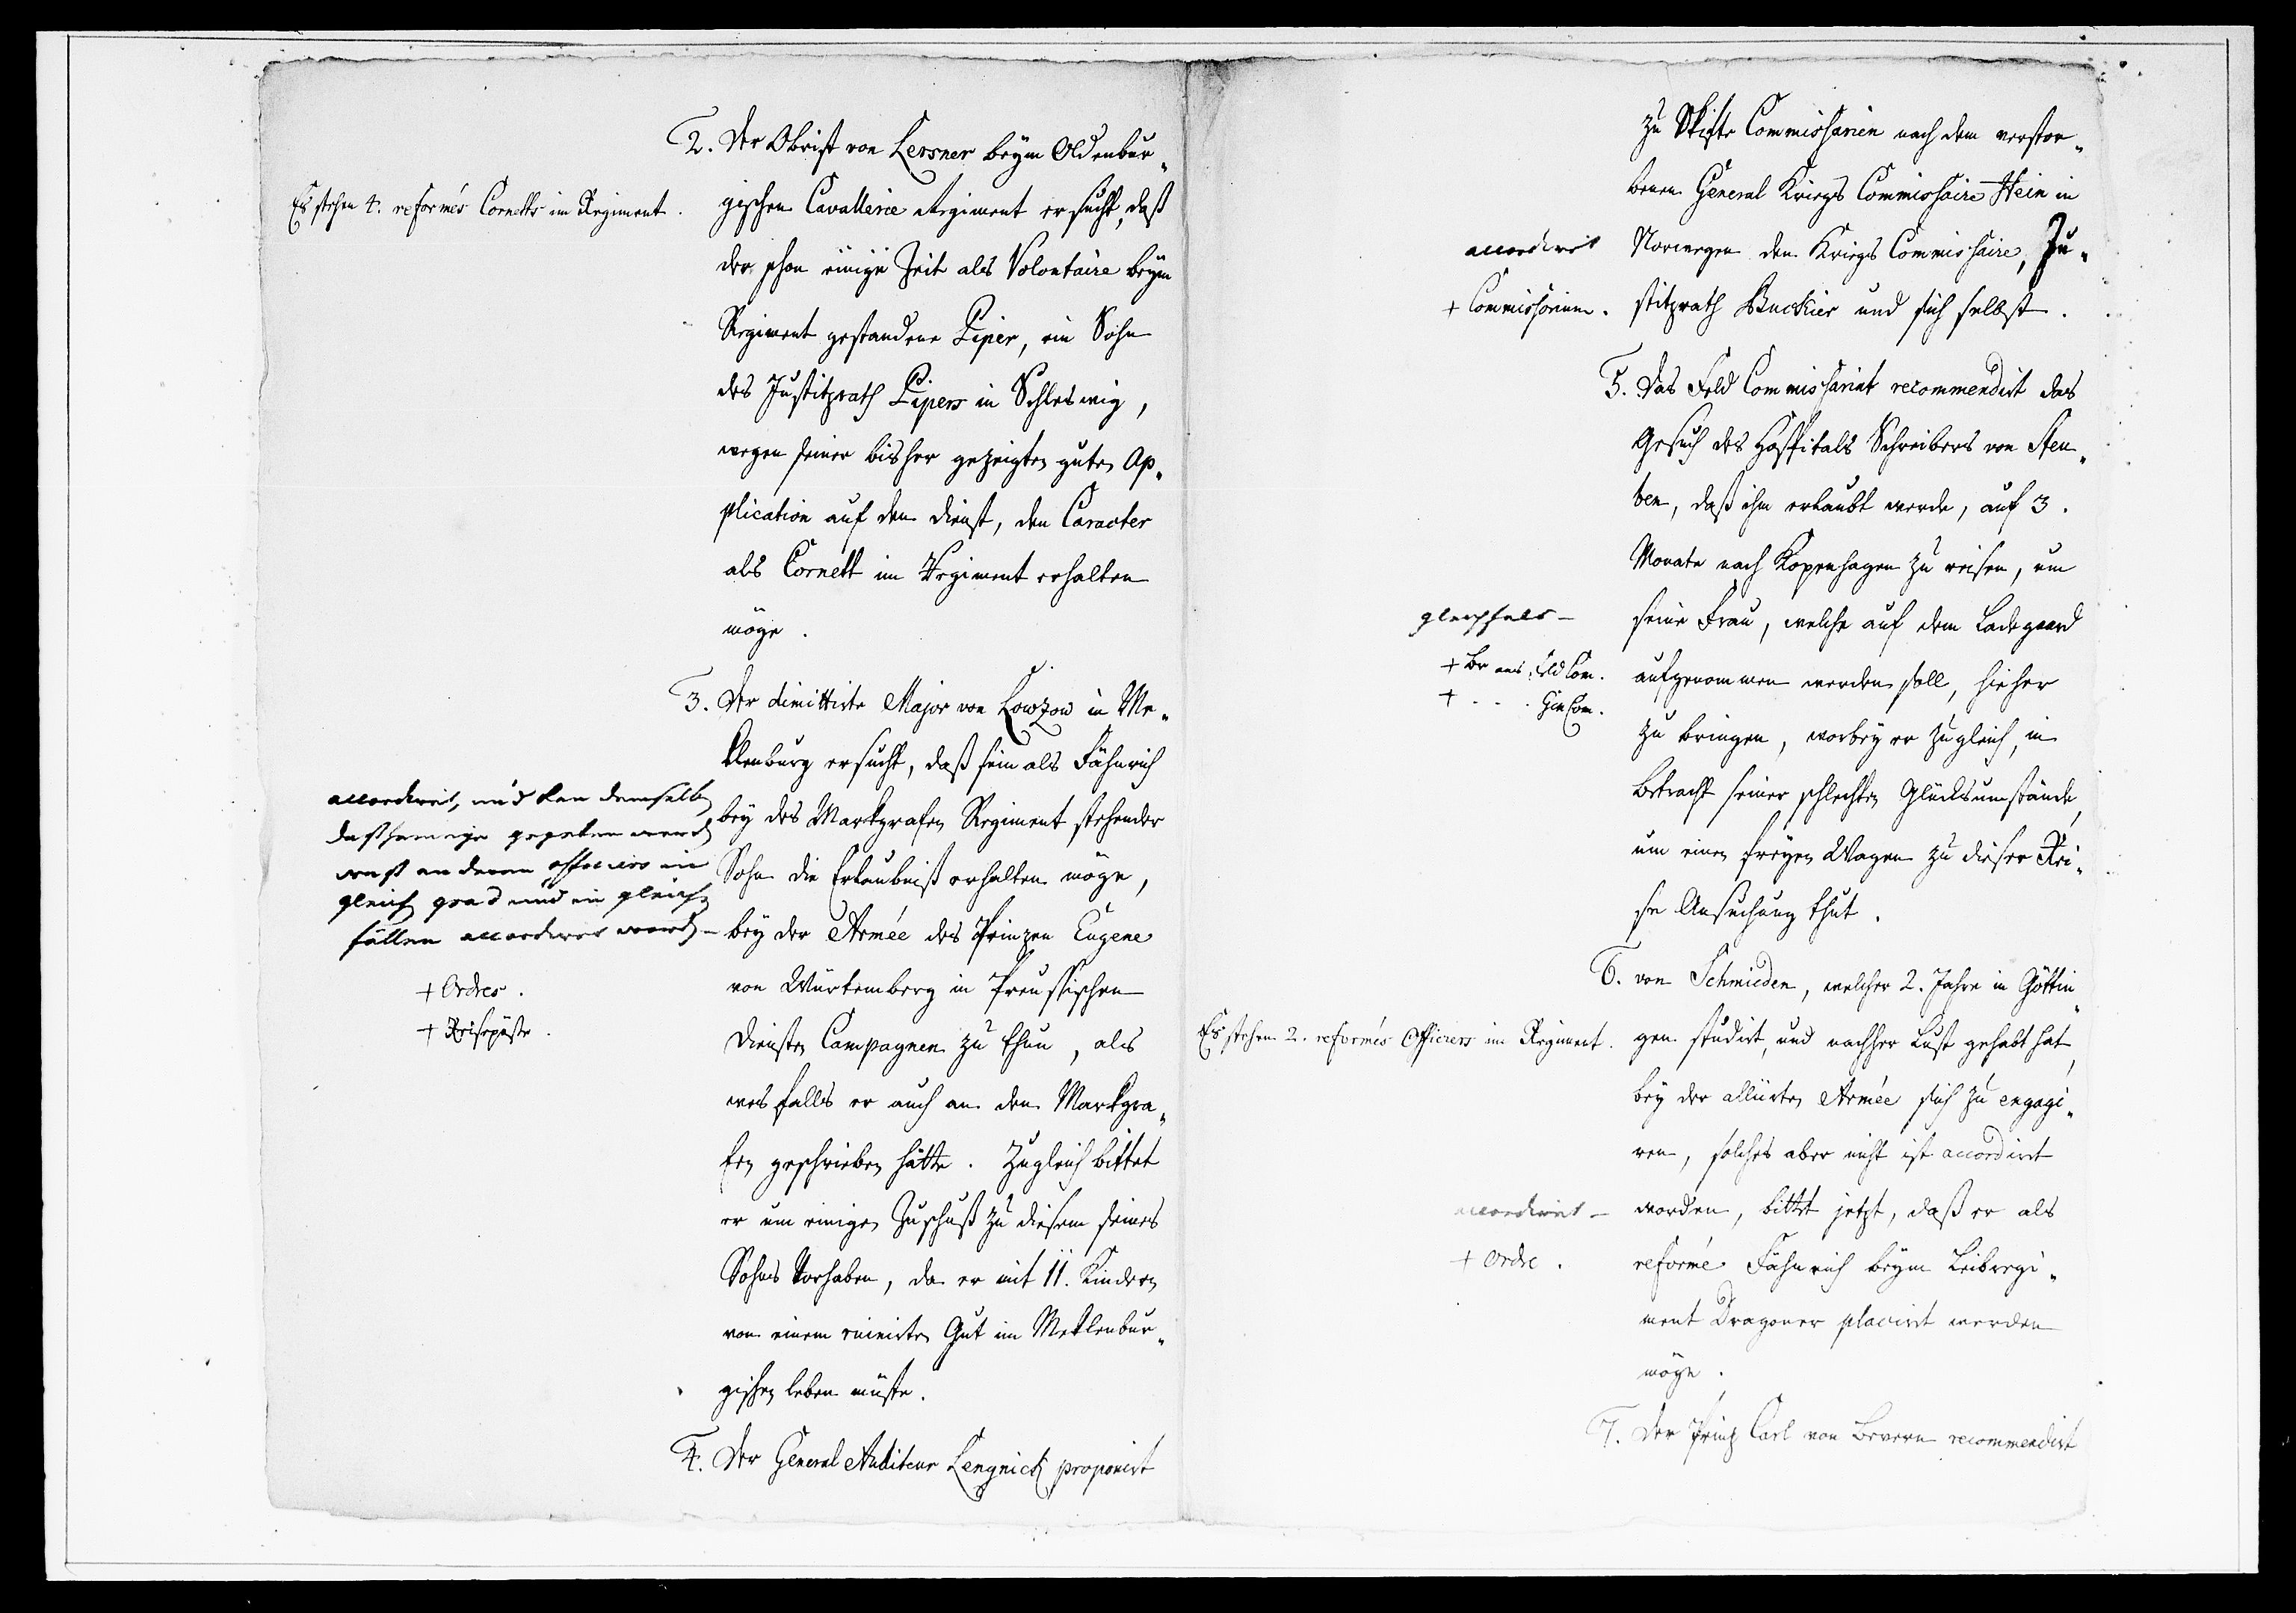 2. Der Obrist von Lersner beÿm Oldenbur„
gischen Cavallerie Regiment ersucht, daß
der schon einige Zeit als Volontaire beÿm
Regiment gestandene Piper, ein Sohn
des Justitzrath Pipers in Schleswig,
wegen seiner bisher gezeigten guten Ap„
plication auf den Dienst, den Caracter
als Cornett im Regiment erhalten
möge.
Es stehen 4. reformés Cornetts im Regiment.
3. Der dimittirte Major von Lowzow in Me„
klenburg ersucht, daß sein als Fähnrich
bey des Markgrafen Regiment stehender
Sohn die Erlaubniß erhalten möge,
bey der Armée des Prinzen Eugene
von Würtemberg in Preussischen
Diensten Campagnen zu thun, als
wesfalls er auch an den Markgra„
fen geschrieben hätte. Zugleich bittet
er um einigen Zuschuß zu diesem seines
Sohns Vorhaben, da er mit 11. Kindern
von einem ruinirten Gut im Meklenbur„
gischen leben müste.
accordiret, und kan demselben
dasjenige gegeben werden
was anderen officiers in
gleich grad und in gleichen
fällen accordiret worden –
+ Ordres.
+ Reisepäße.
4. Der General Auditeur Lengnick proponirt
zu Skifte Commissarien nach dem verstor„
benen General Kriegs Commissaire Hein in
Norwegen den Kriegs Commissaire, Ju„
stitzrath Buckier und sich selbst.
accordiret
+ Commissorium.
5. Das Feld Commissariat recommendirt das
Gesuch des Hospitals Schreibers von Sten„
ben, daß ihm erlaubt werde, auf 3.
Monate nach Kopenhagen zu reisen, um
seine Frau, welche auf dem Ladegaard
aufgenommen werden soll, hieher
zu bringen,worbey er zugleich, in
Betracht seiner schlechten Glücksumstände,
um einen freyen Wagen zu dieser Rei„
se Ansuchung thut.
gleichfals –
+ Br ans Feld Com.
+ . . . Gen Com.
6. von Schmieden, welcher 2. Jahre in Göttin„
gen studirt, und nachher Lust gehabt hat,
bey der alliirten Armée sich zu engagi„
ren, solches aber nicht ist accordirt
worden, bittet jetzt, daß er als
reformé Fähnrich beym Leibregi„
ment Dragoner placirt werden
möge.
Es stehen 2. reformés Officiers im Regiment.
accordiret –
+ Ordre.
7. Der Prinz Carl von Bevern recommendirt